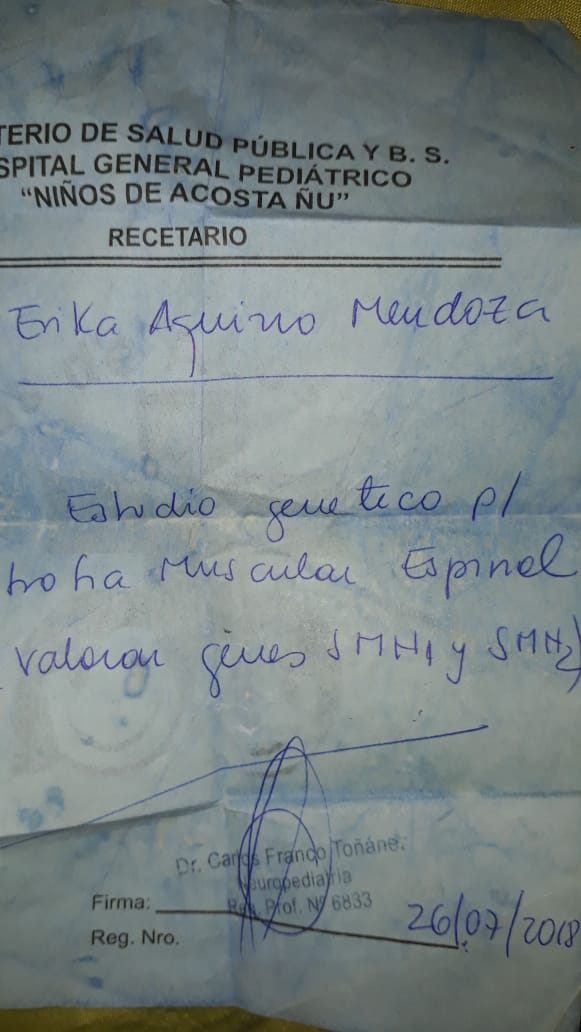 TERIO DE SALUD PÚBLICA Y B. S.
SPITAL GENERAL PEDIÁTRICO
“NIÑOS DE ACOSTA ÑU”
RECETARIO
Erika Aquino Mendoza
Estudio genetico p/
trofia Muscular Espinal
valorar genes SMN1 y SMN2)
Dr. Carlos Franco Toñáne
Neuropediatria
Reg. Prof. Nº 6833
Firma:
26/07/2018
Reg. Nro.